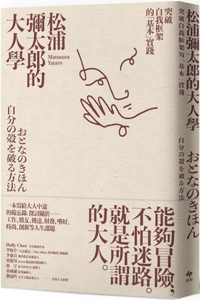 松浦
彌太郎的
大人學
Matsuura
Yataro
突破
自我框架
的「基本」實踐
おとなのきほん
自分の殻を破る方法
一本寫給大人中途
的備忘錄，探討關於——
工作、朋友、傳達、財務、嗜好、
時尚、創新等人生課題
能夠冒險，
不怕迷路。
就是所謂
的大人。
松浦彌太郎的大人學
突破自我框架的「基本」實踐
おとなのきほん
自分の殻を破る方法